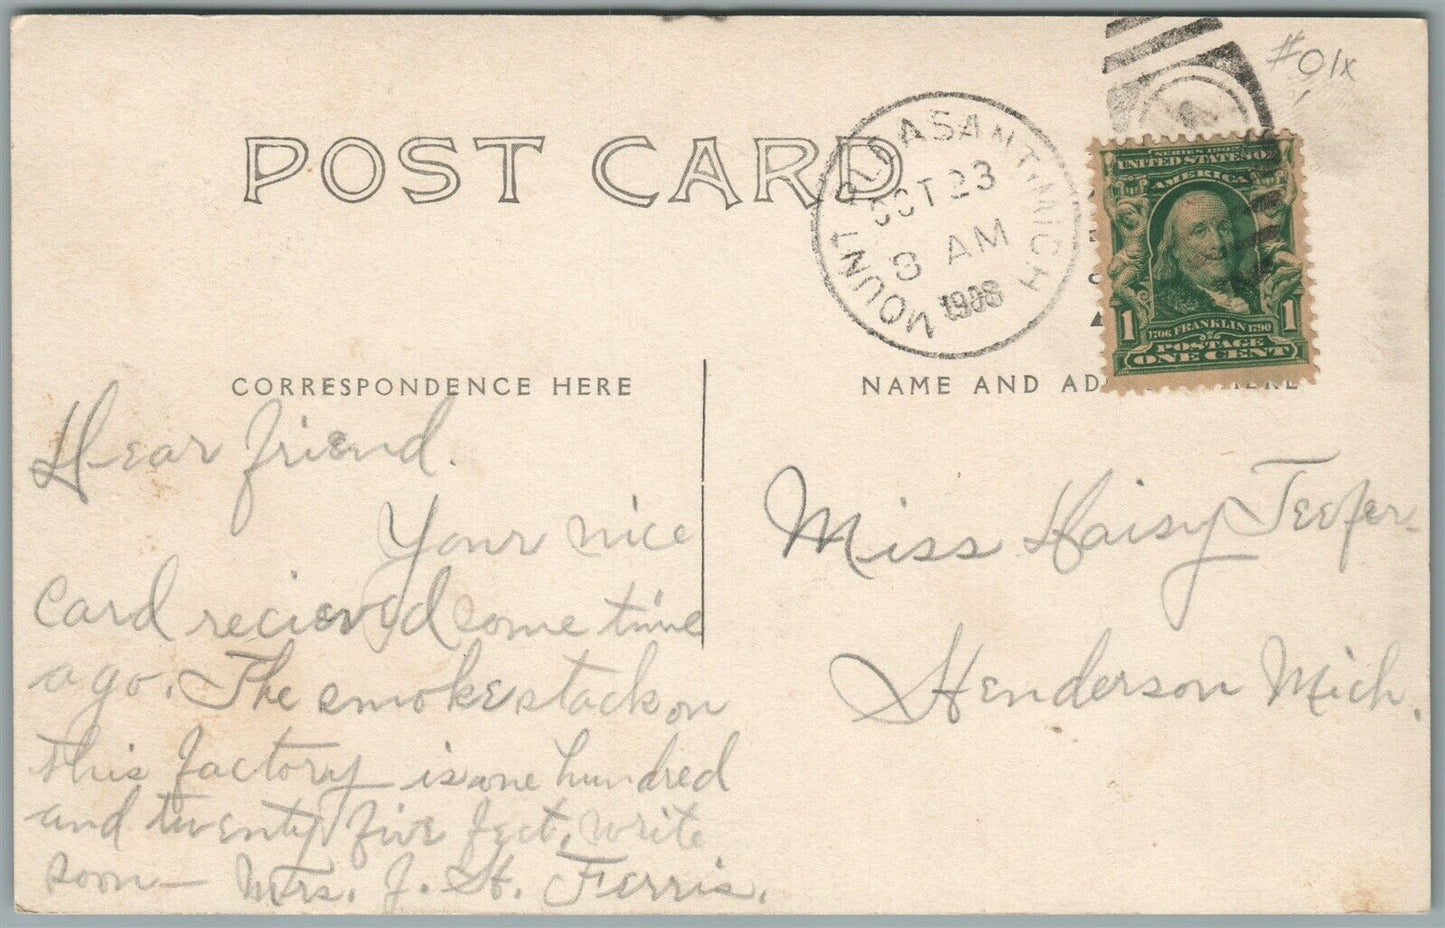 #01x
POST CARD
MOUNT PLEASANT, MICH
OCT 23
8 AM
1908
SERIES 1902
UNITED STATES OF
AMERICA
1 1706 FRANKLIN 1790 1
POSTAGE
ONE CENT
CORRESPONDENCE HERE
NAME AND AD HERE
Dear friend.
Your nice
card recieved some time
ago. The smokestack on
this factory is one hundred
and twenty five feet, write
soon— Mrs. J. H. Ferris.
Miss Haisy Teefer
Henderson Mich.